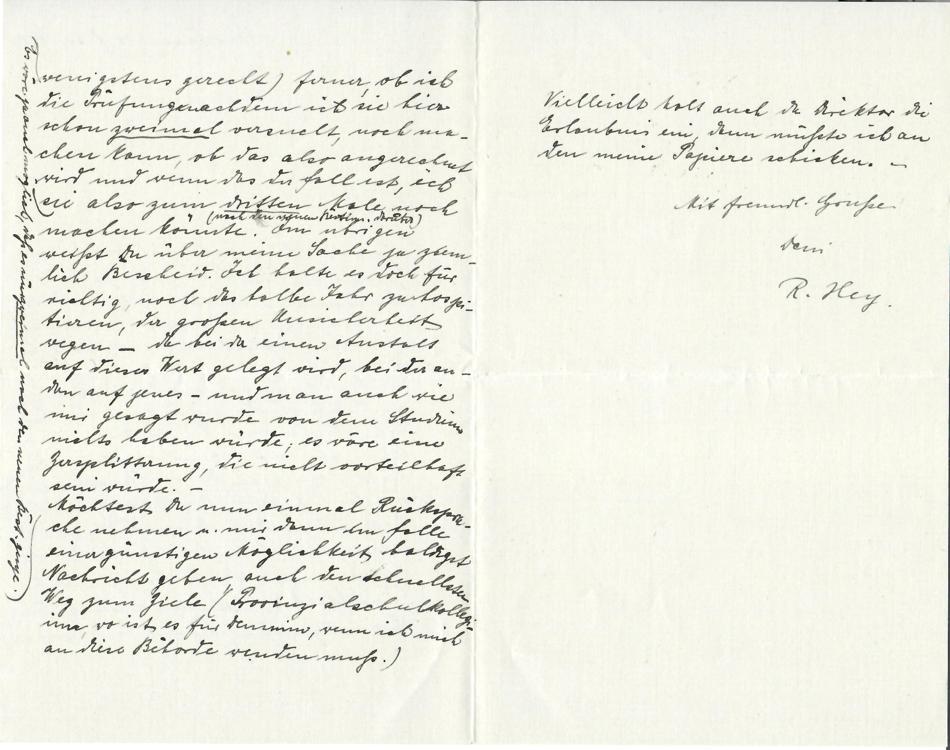 wenigstens gerecht) ferner, ob ich
die Prüfung nachdem ich sie hier
schon zweimal versucht, noch ma-
chen kann, ob das also angerechnet
wird und wenn das der fall ist, ich
sie also zum dritten Male noch
(nach den neuen Bestim. darüber)
machen könnte. Im übrigen
weißt Du über meine Sache ja ziem-
lich Bescheid. Ich halte es doch für
richtig, noch das halbe Jahr zu hospi-
tieren, der großen Unsicherheit
wegen — da bei der einen Anstalt
auf dieses Wert gelegt wird, bei der an-
dern auf jenes – und man auch wie
mir gesagt wurde von dem Studium
nichts haben würde; es wäre eine
Zersplitterung, die nicht vorteilhaft
sein würde. —
Möchtest Du nun einmal Rückspra-
che nehmen u. mir dann im falle
einer günstigen Möglichkeit, baldigst
Nachricht geben, auch den schnellsten
Weg zum Ziele (Provinzialschulkollegi-
um, wo ist es für Demmin, wenn ich mich
an diese Behörde wenden muß.)
(Es wäre ja auch möglich, daß es nur zweimal nach den neuen Best. ginge.)
Vielleicht holt auch der Direktor die
Erlaubnis ein, dann müßte ich an
den meine Papiere schicken. —
Mit freundl. Gruße
Dein
R. Hey.